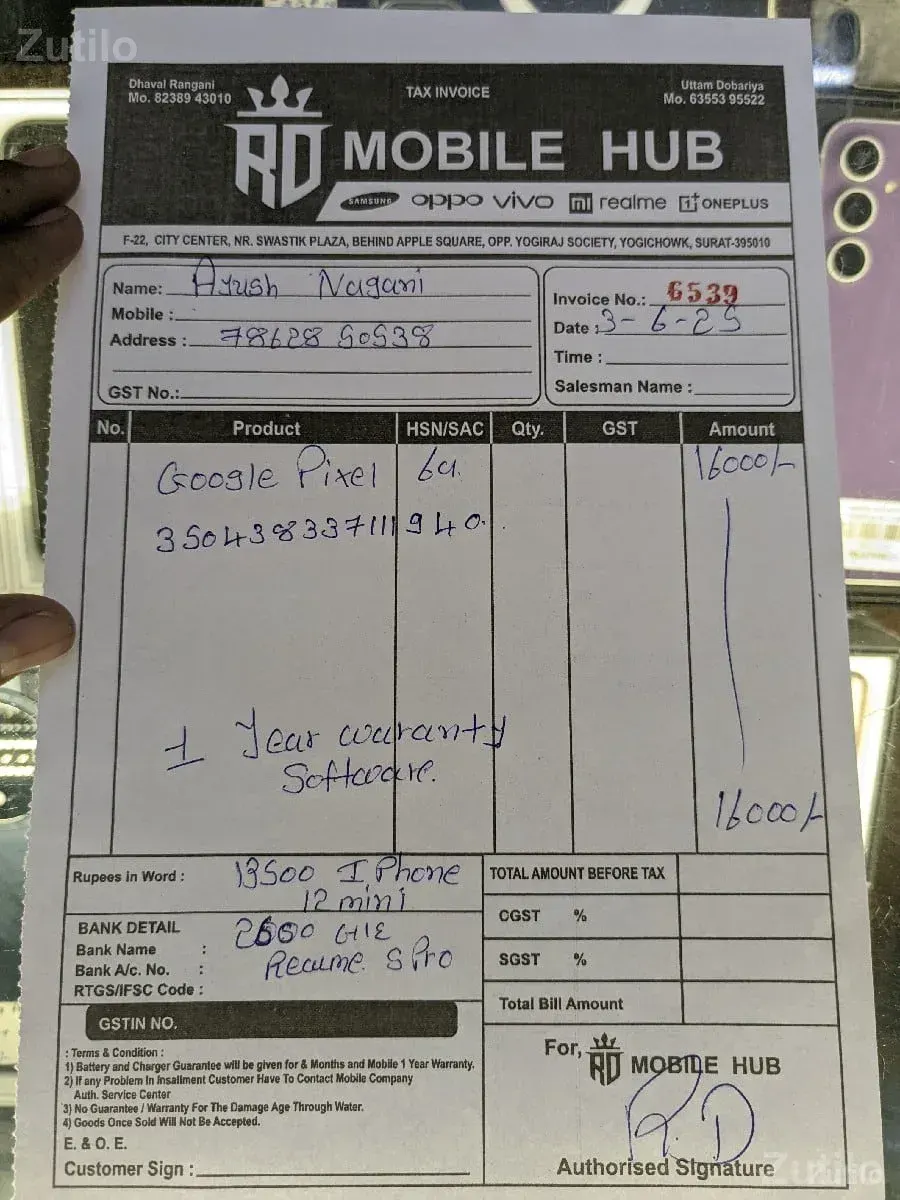 Zutilo
Dhaval Rangani
Mo. 82389 43010
TAX INVOICE
Uttam Dobariya
Mo. 63553 95522
RD MOBILE HUB
SAMSUNG oppo vivo mi realme 1+ ONEPLUS
F-22, CITY CENTER, NR. SWASTIK PLAZA, BEHIND APPLE SQUARE, OPP. YOGIRAJ SOCIETY, YOGICHOWK, SURAT-395010
Name: Ayush Nagani
Mobile :
Address : 78628 50538
GST No.:
Invoice No.: 6539
Date : 3-6-25
Time :
Salesman Name :
No. Product HSN/SAC Qty. GST Amount
Google Pixel 6a. 16000/-
350438337111940.
1 Year waranty
Software.
16000/-
Rupees in Word : 13500 I Phone
12 mini
BANK DETAIL
Bank Name :
Bank A/c. No. :
RTGS/IFSC Code :
Realme 8 Pro
GSTIN NO.
TOTAL AMOUNT BEFORE TAX
CGST %
SGST %
Total Bill Amount
: Terms & Condition :
1) Battery and Charger Guarantee will be given for & Months and Mobile 1 Year Warranty.
2) If any Problem In Insallment Customer Have To Contact Mobile Company
Auth. Service Center
3) No Guarantee / Warranty For The Damage Age Through Water.
4) Goods Once Sold Will Not Be Accepted.
E. & O. E.
Customer Sign :
For, RD MOBILE HUB
R.D
Authorised Signature
Zutilo